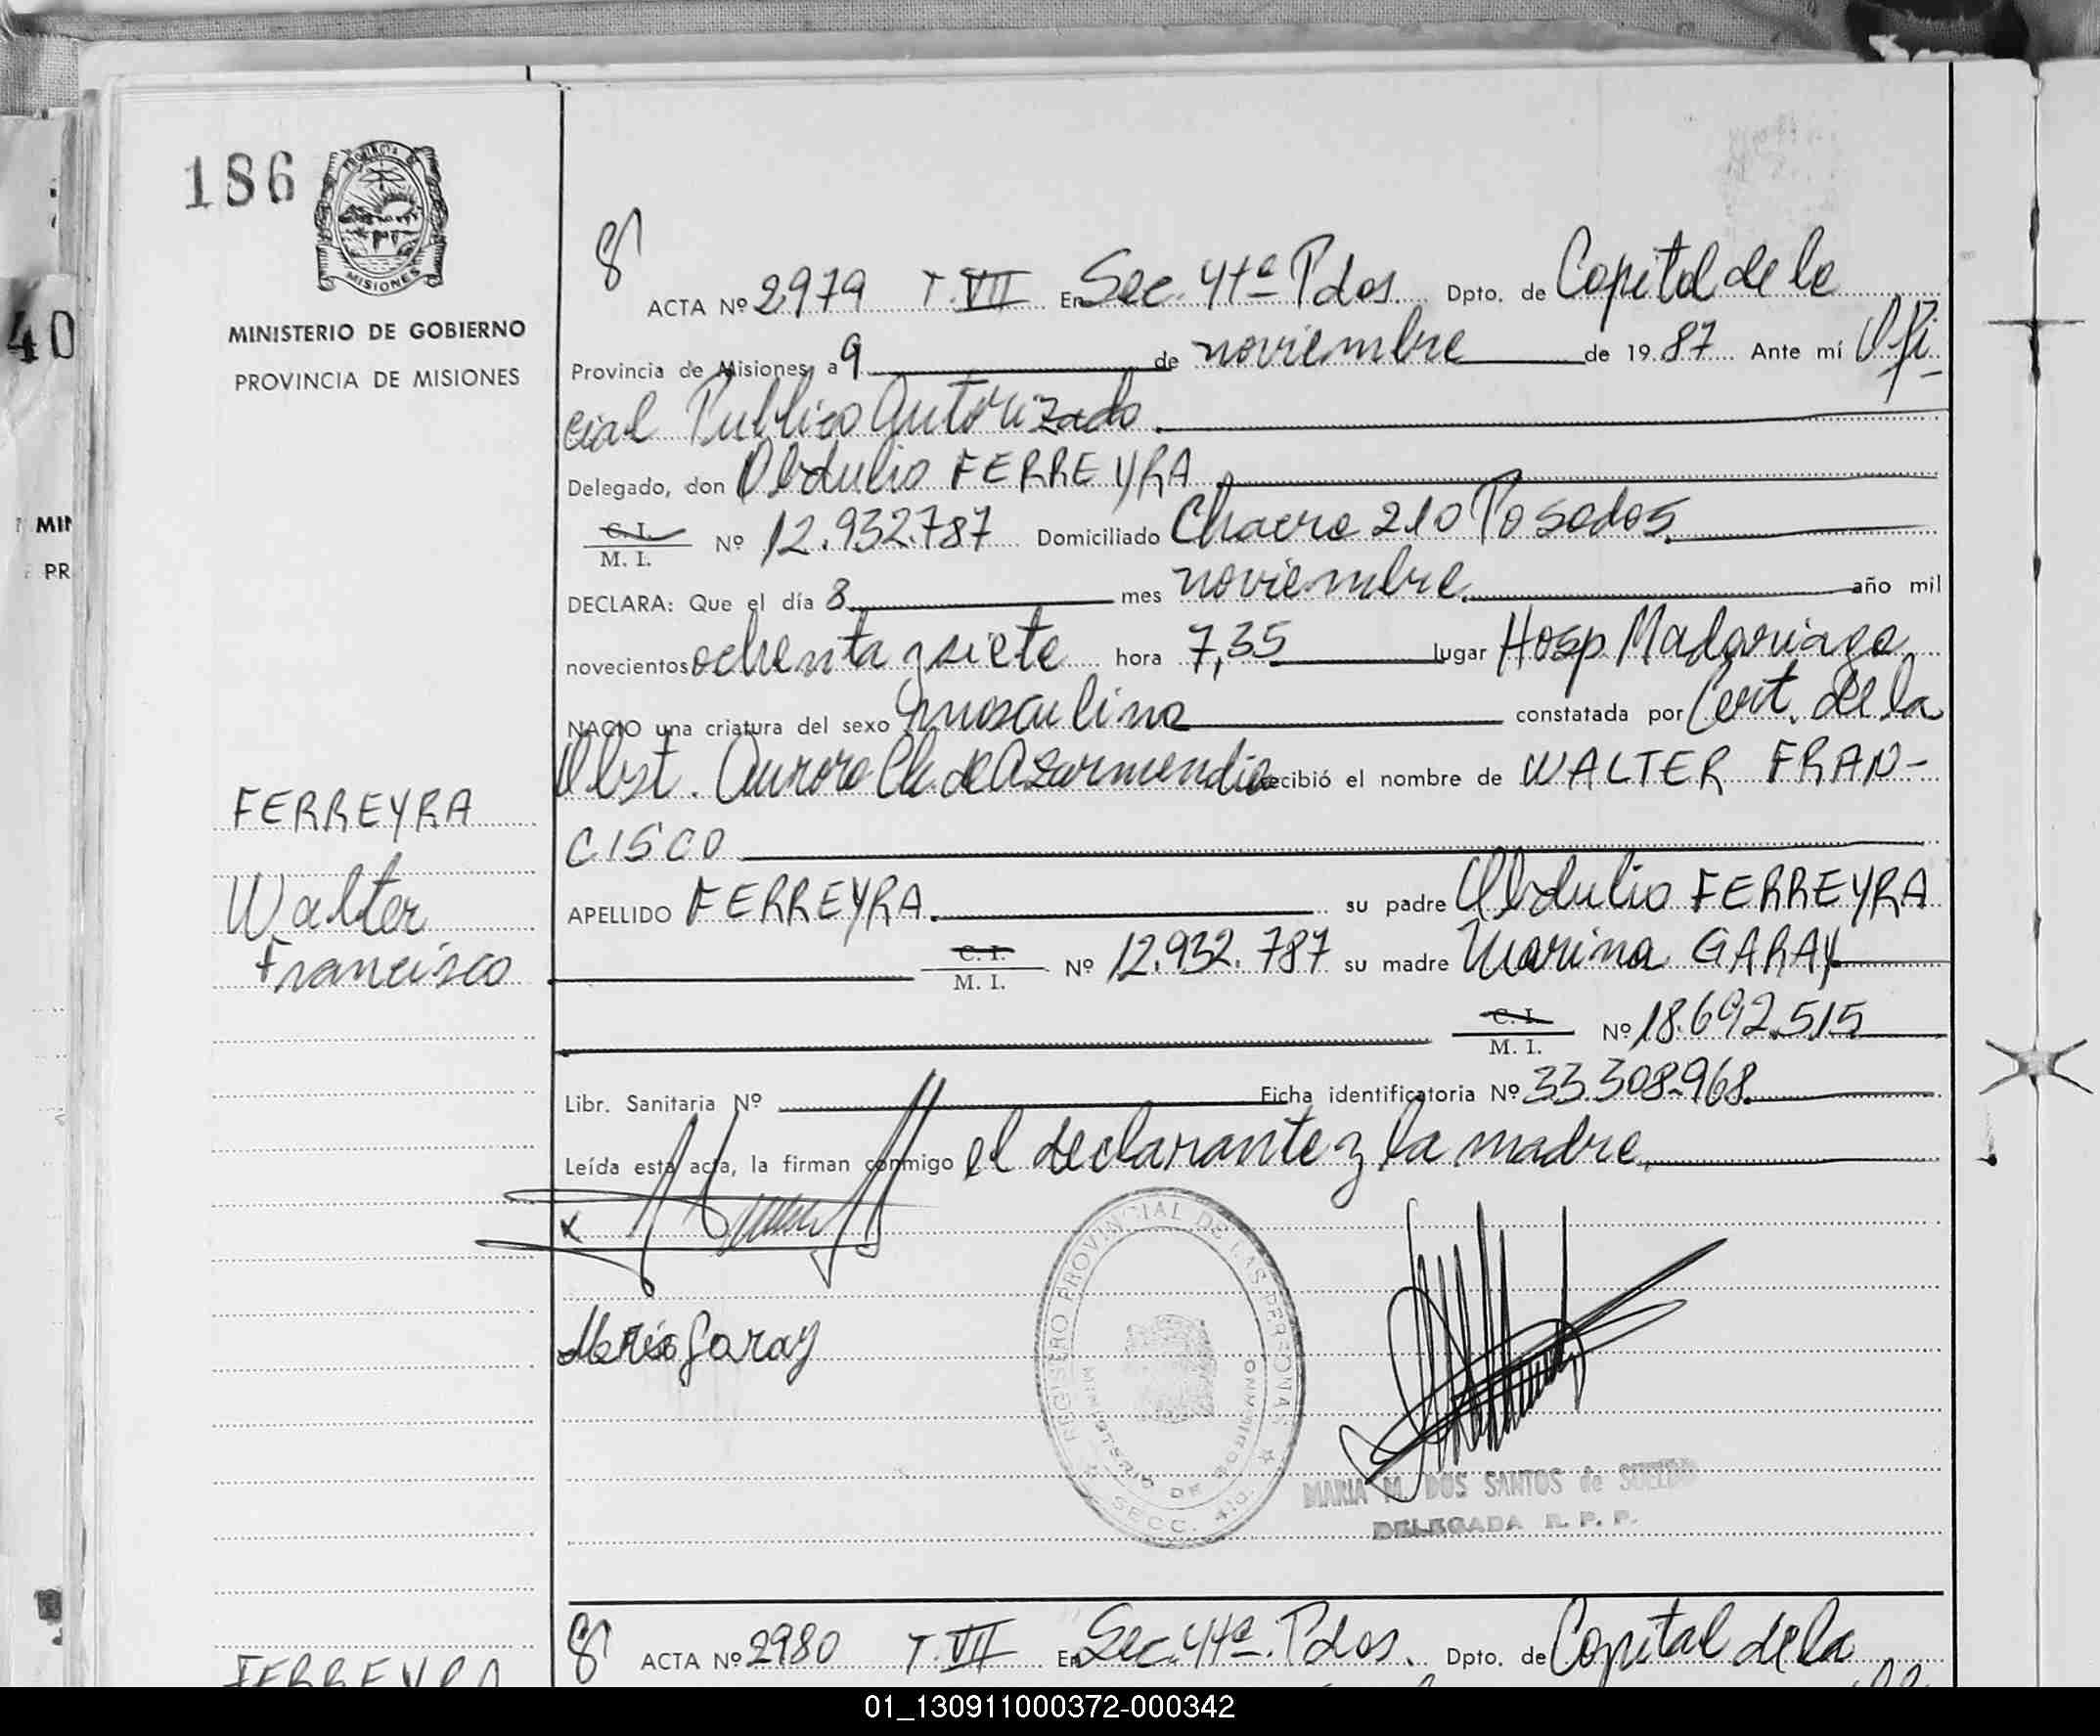 186
PROVINCIA DE
MISIONES
MINISTERIO DE GOBIERNO
PROVINCIA DE MISIONES
40
MIN
PR
8
ACTA Nº 2979 T. VII En Sec. 4ta Pdas. Dpto. de Capital de la
Provincia de Misiones, a 9 de noviembre de 1987 Ante mí Ofi-
cial Publico Autorizado.
Delegado, don Obdulio FERREYRA
C. I.
M. I. Nº 12.932.787 Domiciliado Chacra 210 Posadas.
DECLARA: Que el día 8 mes noviembre. año mil
novecientos ochenta y siete hora 7,35 lugar Hosp. Madariaga
NACIO una criatura del sexo masculino constatada por Cert. de la
Obst. Aurora Ch. de Azarmendia recibió el nombre de WALTER FRAN-
CISCO
FERREYRA
Walter
Francisco
APELLIDO FERREYRA. su padre Obdulio FERREYRA
C. I.
M. I. Nº 12.932.787 su madre Marina GARAY
C. I.
M. I. Nº 18.692.515
Libr. Sanitaria Nº Ficha identificatoria Nº 33.308.968.
Leída esta acta, la firman conmigo el declarante y la madre.
x
Garay
REGISTRO PROVINCIAL DE LAS PERSONAS
MINISTERIO DE GOBIERNO
SECC. 4ta.
MARIA M. DOS SANTOS de
DELEGADA R. P. P.
8
ACTA Nº 2980 T. VII En Sec. 4ta. Pdas. Dpto. de Capital de la
FERREYRA
01_130911000372-000342